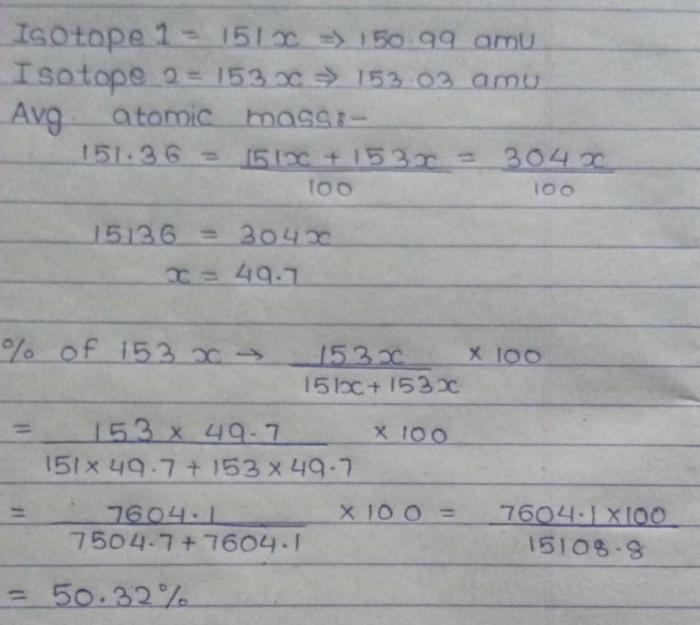 Isotope 1 = 151x ⇒ 150.99 amu
Isotope 2 = 153x ⇒ 153.03 amu
Avg. atomic mass:-
151.36 = 151x + 153x / 100 = 304x / 100
15136 = 304x
x = 49.7
% of 153x → 153x / 151x + 153x × 100
= 153 × 49.7 / 151 × 49.7 + 153 × 49.7 × 100
= 7604.1 / 7504.7 + 7604.1 × 100 = 7604.1 × 100 / 15108.8
= 50.32%